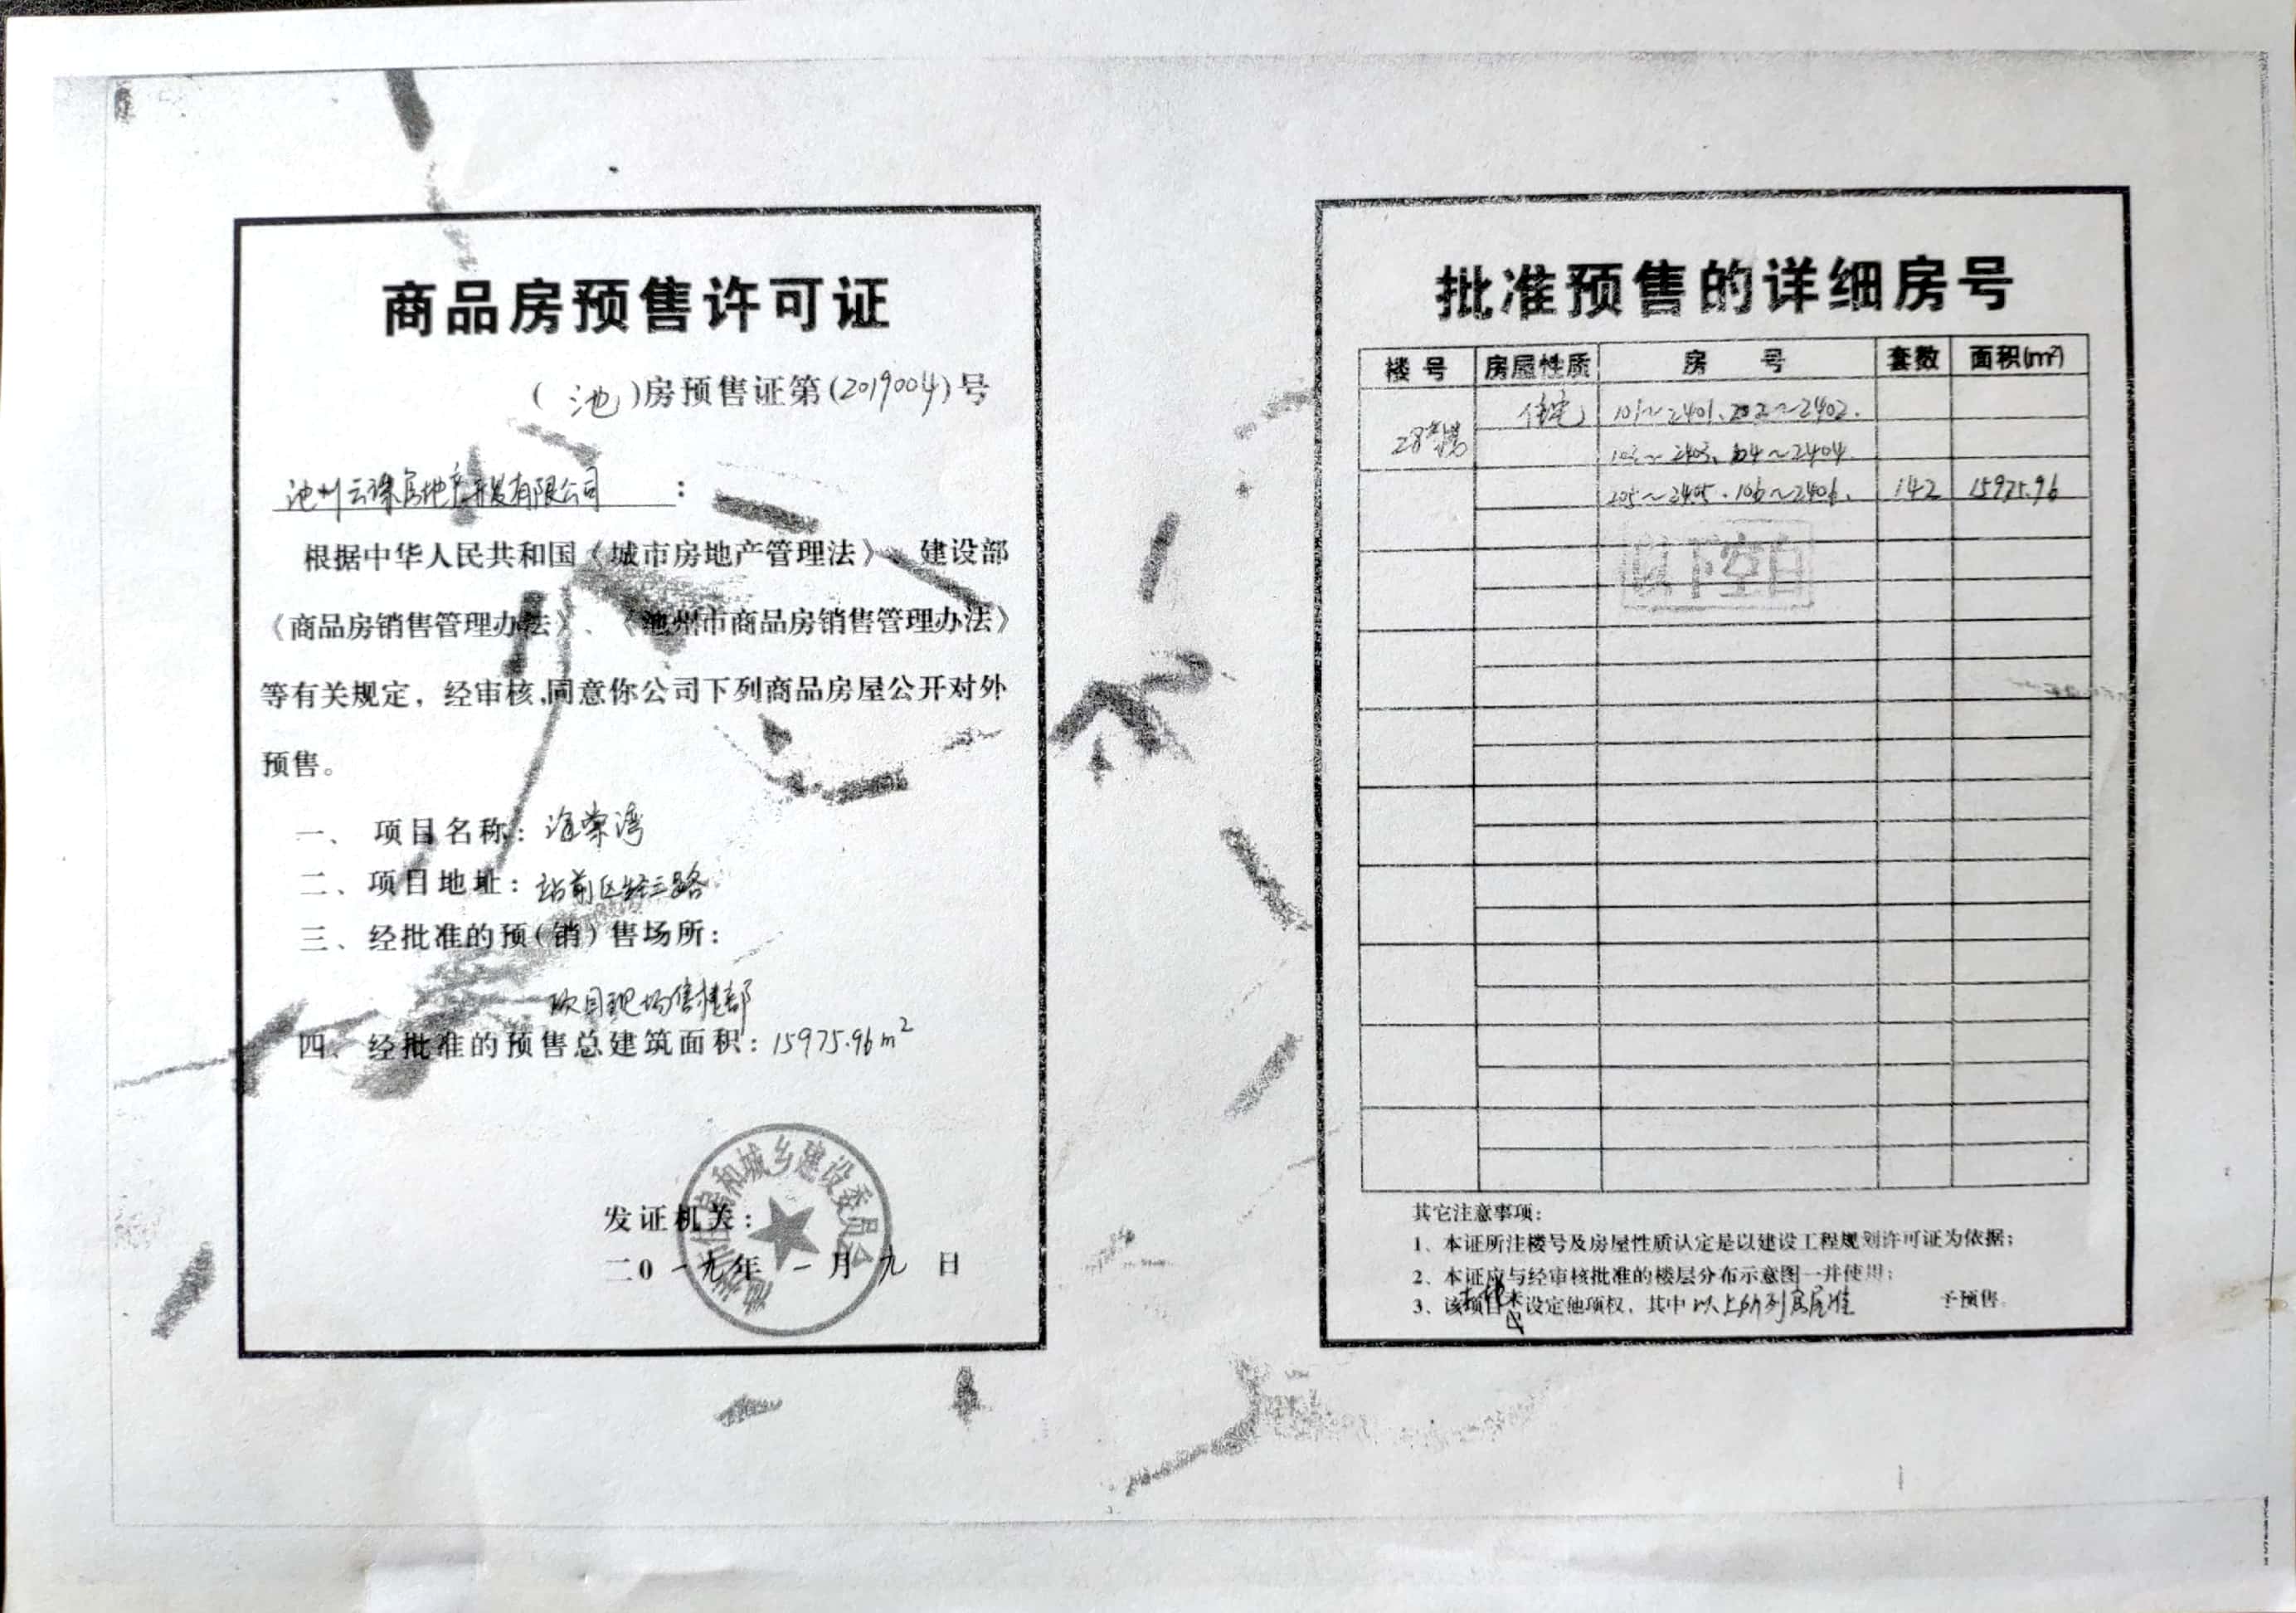 商品房预售许可证
(池)房预售证第(2019004)号
池州云瑑房地产开发有限公司:
根据中华人民共和国《城市房地产管理法》、建设部
《商品房销售管理办法》、《池州市商品房销售管理办法》
等有关规定，经审核,同意你公司下列商品房屋公开对外
预售。
一、项目名称: 海棠湾
二、项目地址: 站前区经三路
三、经批准的预(销)售场所:
项目现场售楼部
四、经批准的预售总建筑面积: 15975.96m²
住房和城乡建设委员会
发证机关:
二0一九年一月九日
批准预售的详细房号
楼号 房屋性质 房号 套数 面积(m²)
28#楼 住宅 101~2401、202~2402.
103~2403、104~2404
205~2405、106~2406. 142 15975.96
以下空白
其它注意事项:
1、本证所注楼号及房屋性质认定是以建设工程规划许可证为依据;
2、本证应与经审核批准的楼层分布示意图一并使用;
3、该项目未设定他项权，其中以上所列房屋准予预售。